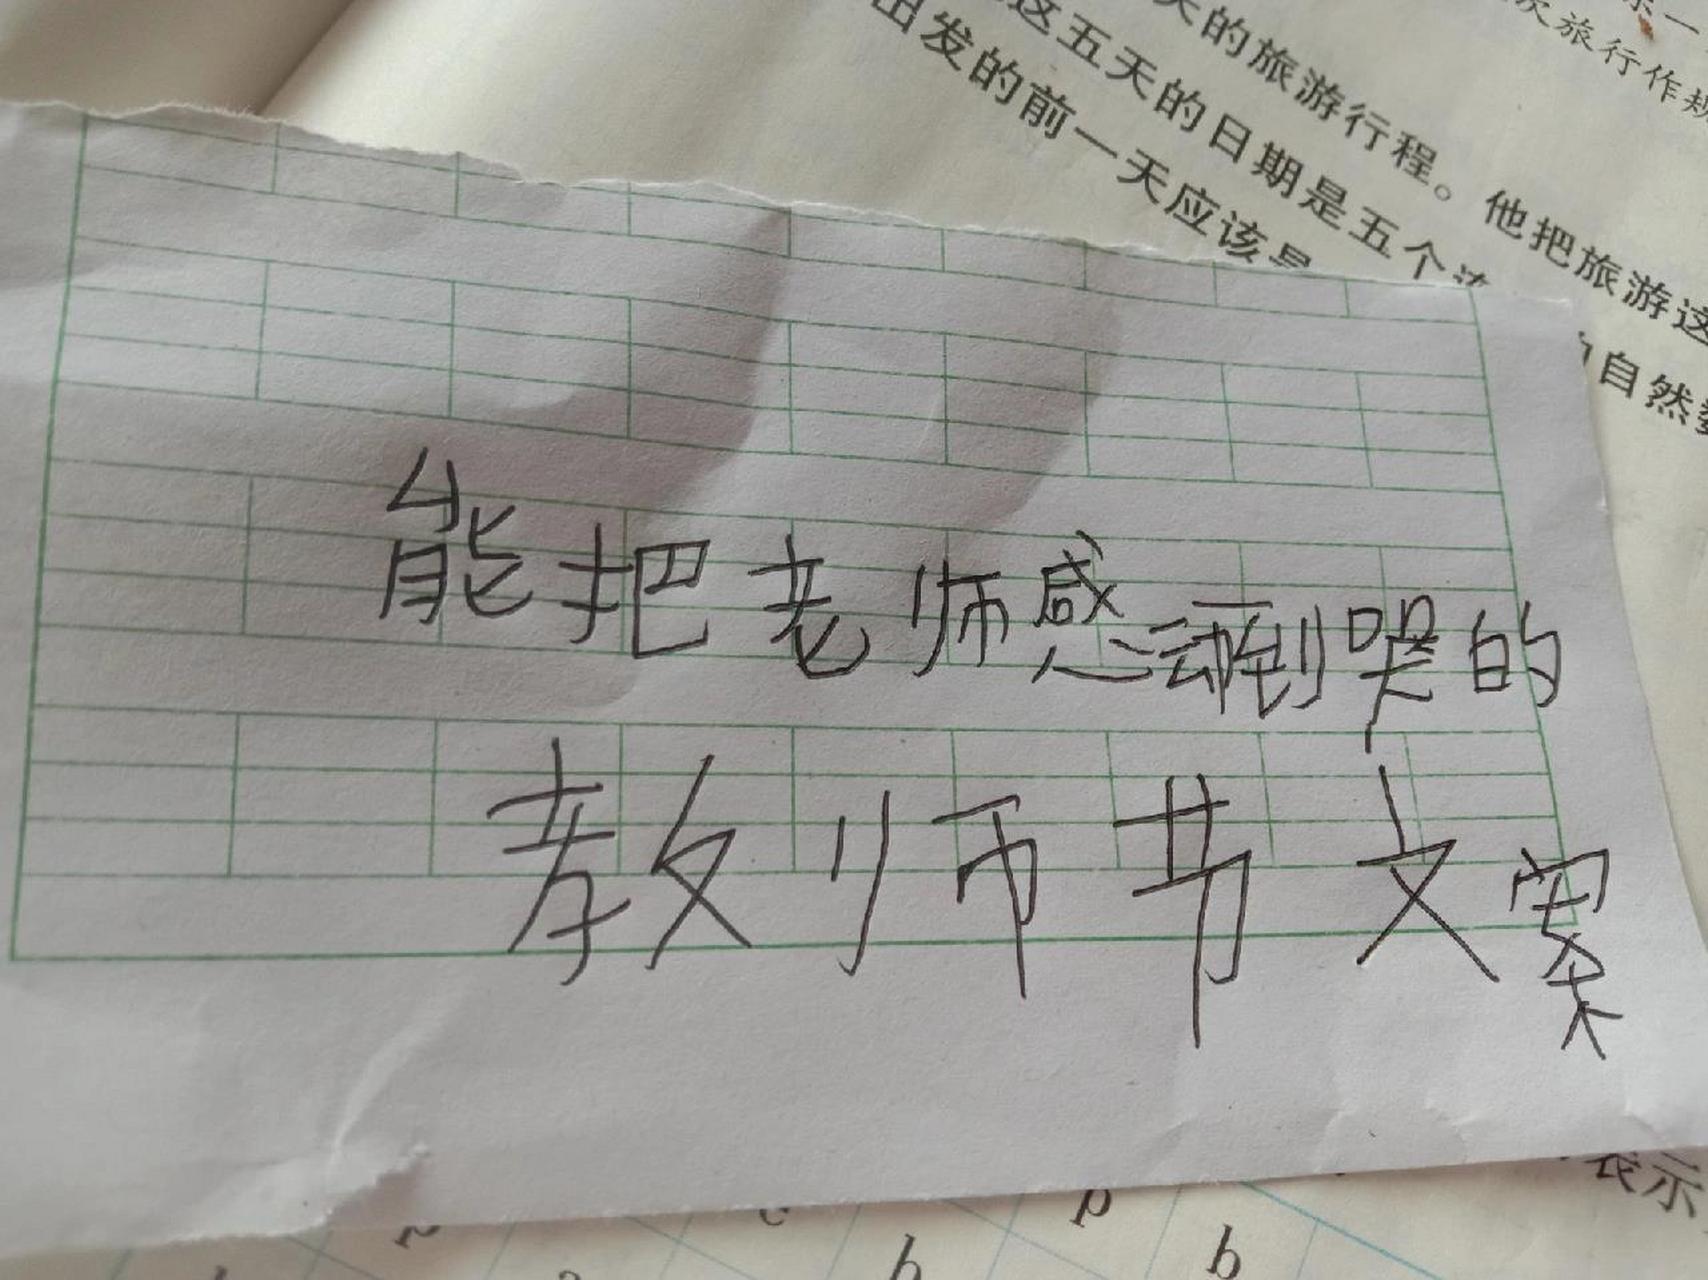 天的旅游行程。他把旅游这
这五天的日期是五个连
出发的前一天应该是
次旅行作规
自然数
能把老师感动到哭的
教师节文案
表示
p
b
b